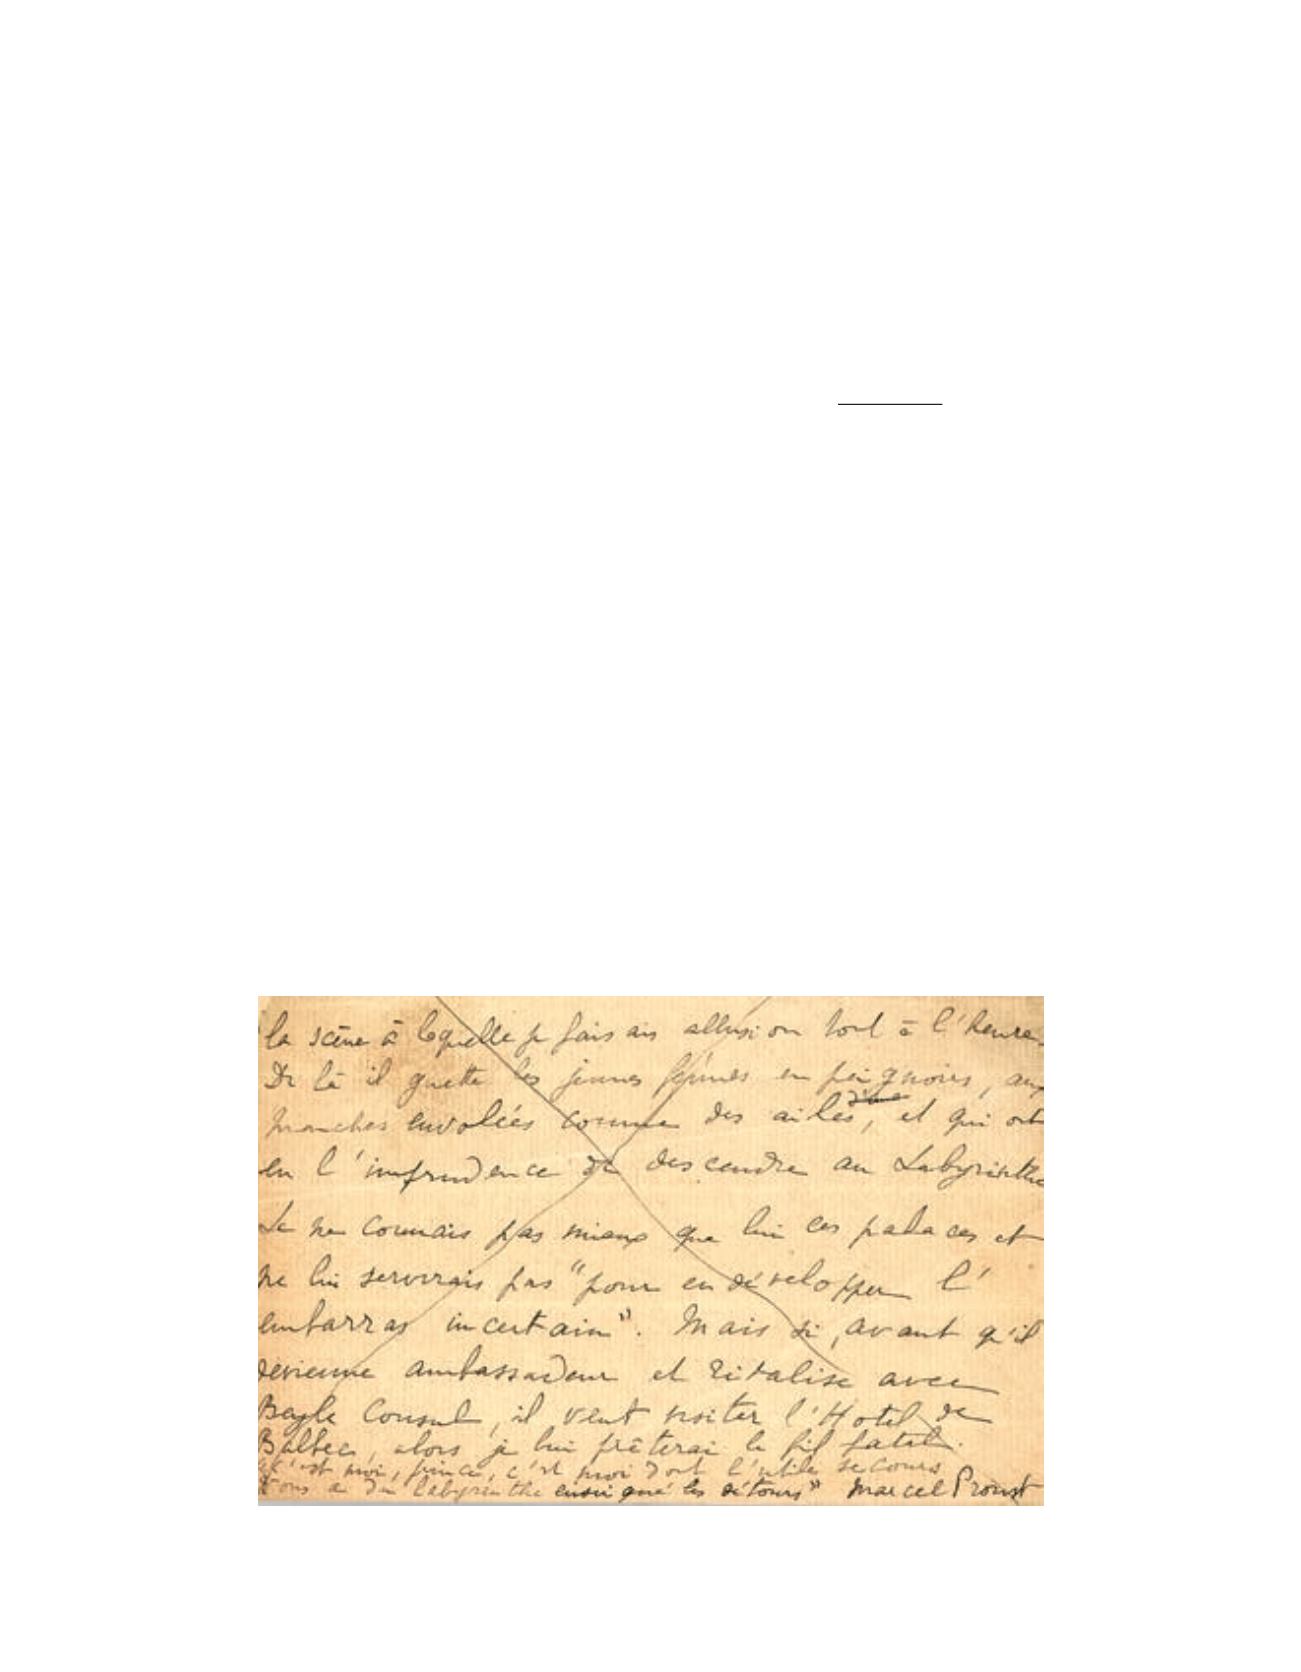 la scène à laquelle je faisais allusion tout à l'heure.
De là il guette les jeunes femmes en peignoirs, aux
manches envolées comme des ailes, et qui ont
eu l'imprudence de descendre au Labyrinthe
Je ne connais pas mieux que lui ces palaces et
ne lui servirais pas "pour en développer l'
embarras incertain". Mais si, avant qu'il
devienne ambassadeur et rivalise avec
Beyle Consul, il veut visiter l'Hotel de
Balbec, alors je lui prêterai le fil fatal.
"C'est moi, prince, c'est moi dont l'utile secours
Vous a du labyrinthe enseigné les détours" Marcel Proust